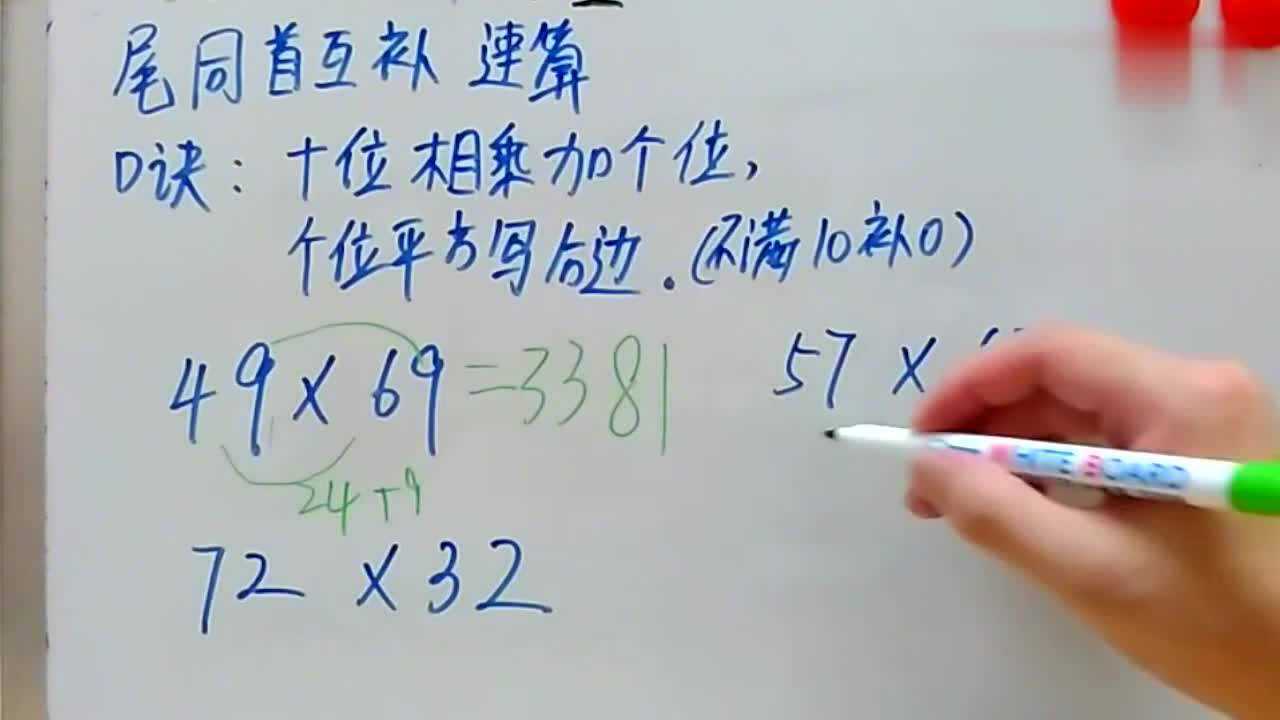 尾同首互补 速算
口诀：十位相乘加个位，
个位平方写后边.(不满10补0)
49×69=3381
24+9
57×
72×32
WHITE BOARD